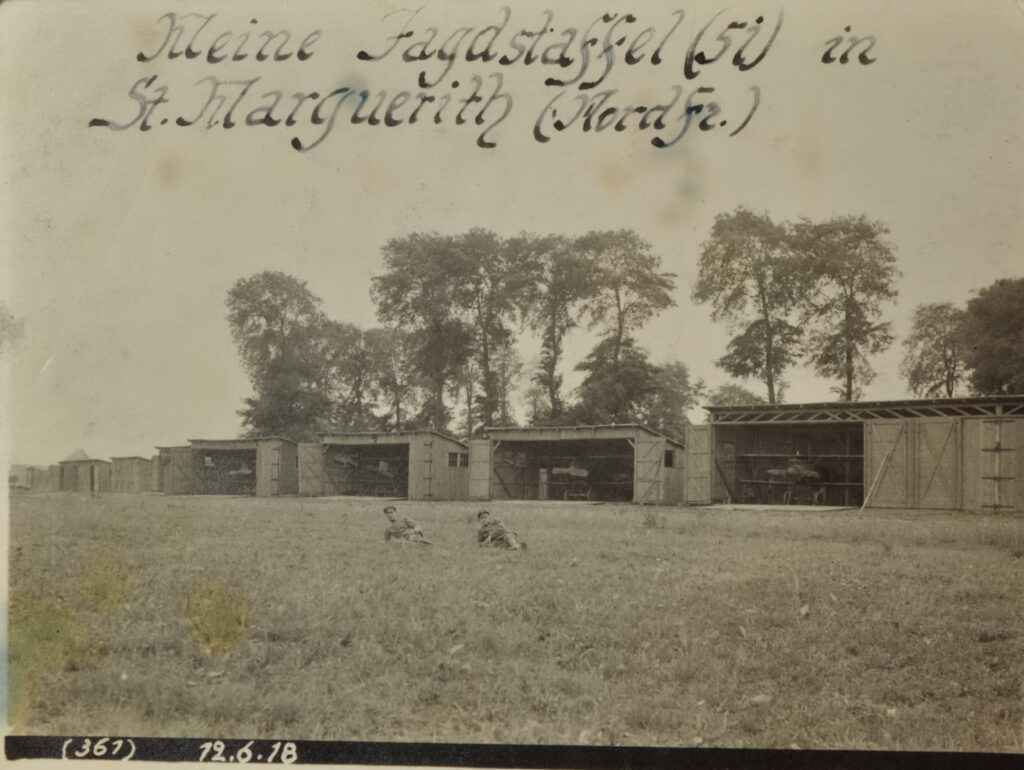 Meine Jagdstaffel (51) in
St. Marguerith (Nordfr.)
(361) 12.6.18